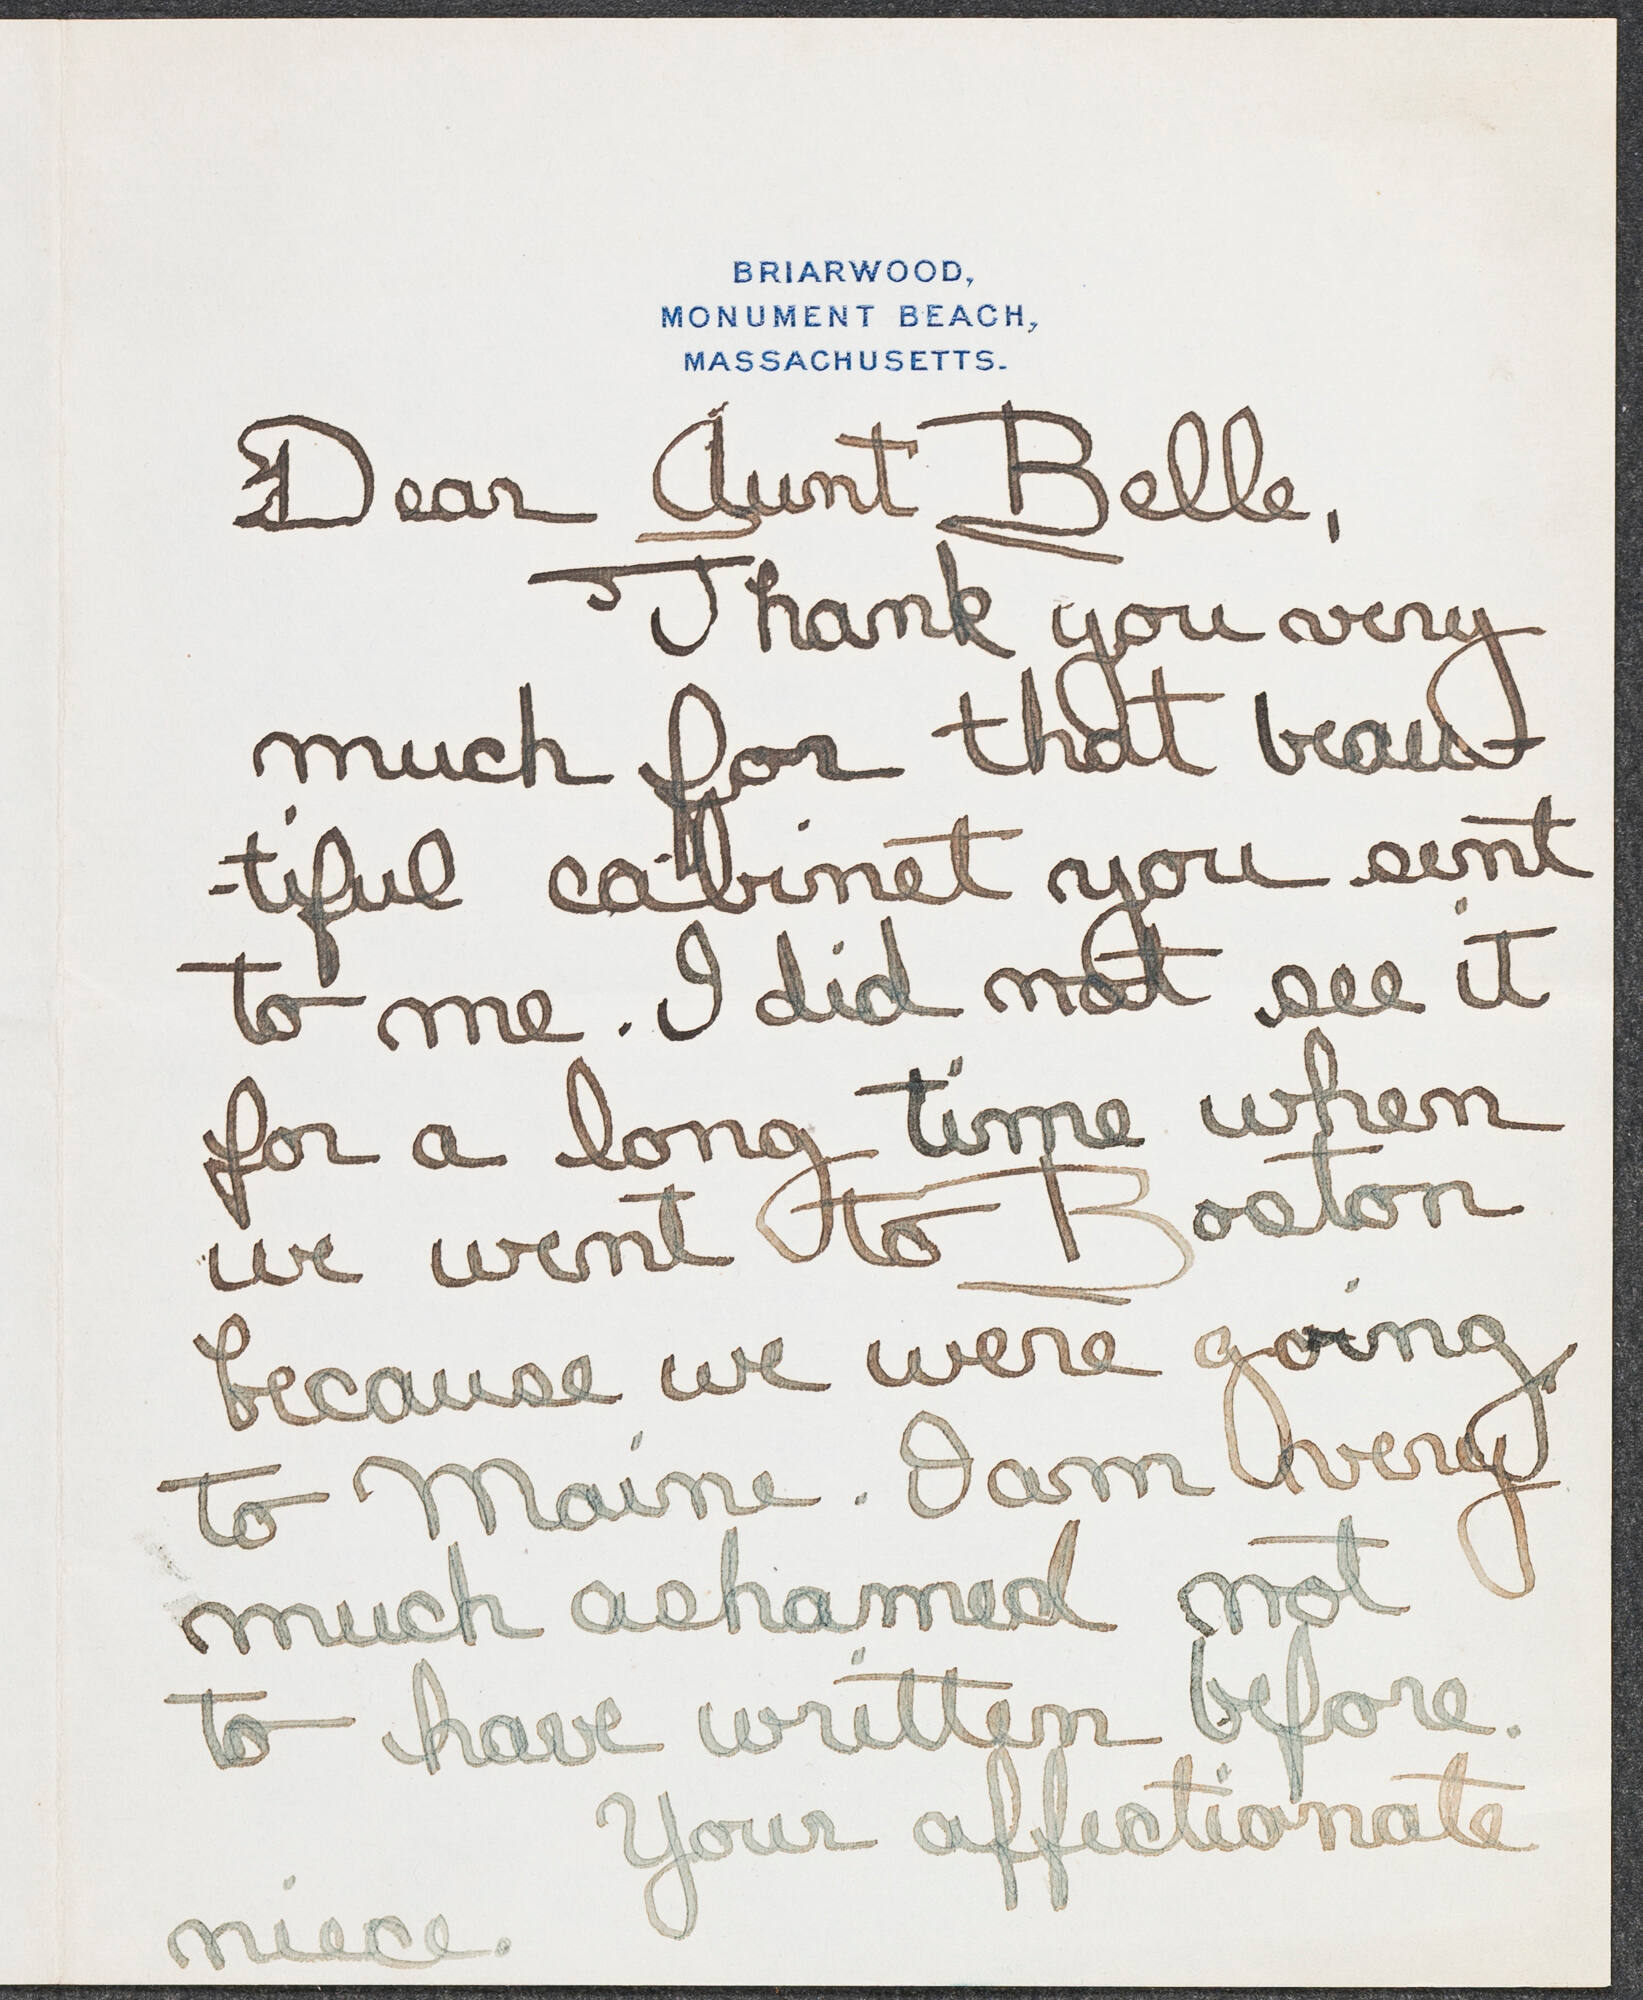 BRIARWOOD,
MONUMENT BEACH,
MASSACHUSETTS.
Dear Aunt Belle,
Thank you very
much for that beau
-tiful cabinet you sent
to me. I did not see it
for a long time when
we went to Boston
because we were going
to Maine. I am very
much ashamed not
to have written before.
Your affectionate
niece.